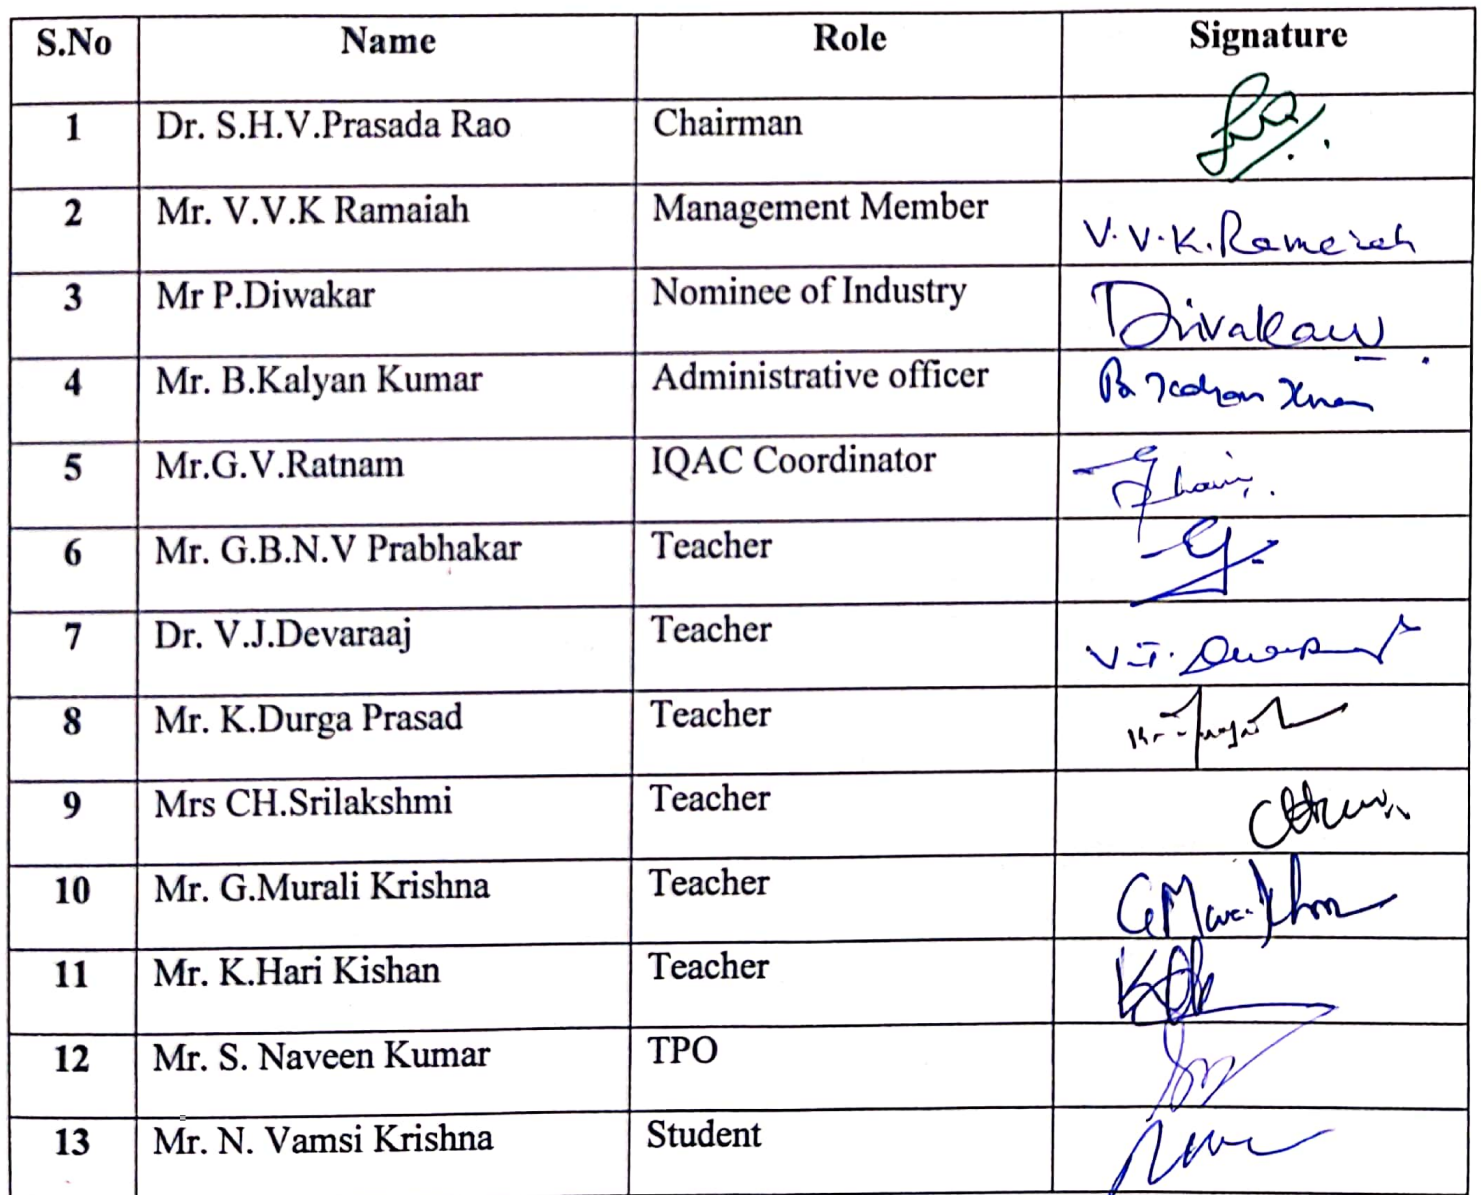 S.No Name Role Signature
1 Dr. S.H.V.Prasada Rao Chairman
2 Mr. V.V.K Ramaiah Management Member V.V.K.Ramaiah
3 Mr P.Diwakar Nominee of Industry Divakar
4 Mr. B.Kalyan Kumar Administrative officer
5 Mr.G.V.Ratnam IQAC Coordinator
6 Mr. G.B.N.V Prabhakar Teacher
7 Dr. V.J.Devaraaj Teacher V.J.
8 Mr. K.Durga Prasad Teacher
9 Mrs CH.Srilakshmi Teacher
10 Mr. G.Murali Krishna Teacher
11 Mr. K.Hari Kishan Teacher
12 Mr. S. Naveen Kumar TPO
13 Mr. N. Vamsi Krishna Student